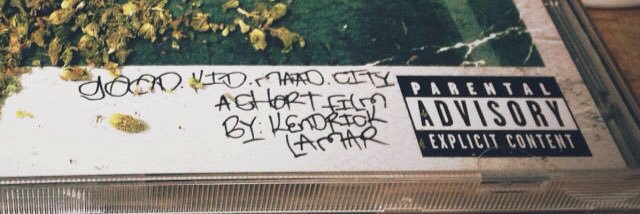 good kid, m.A.A.d city
A SHORT FILM
BY: KENDRICK
LAMAR
PARENTAL
ADVISORY
EXPLICIT CONTENT